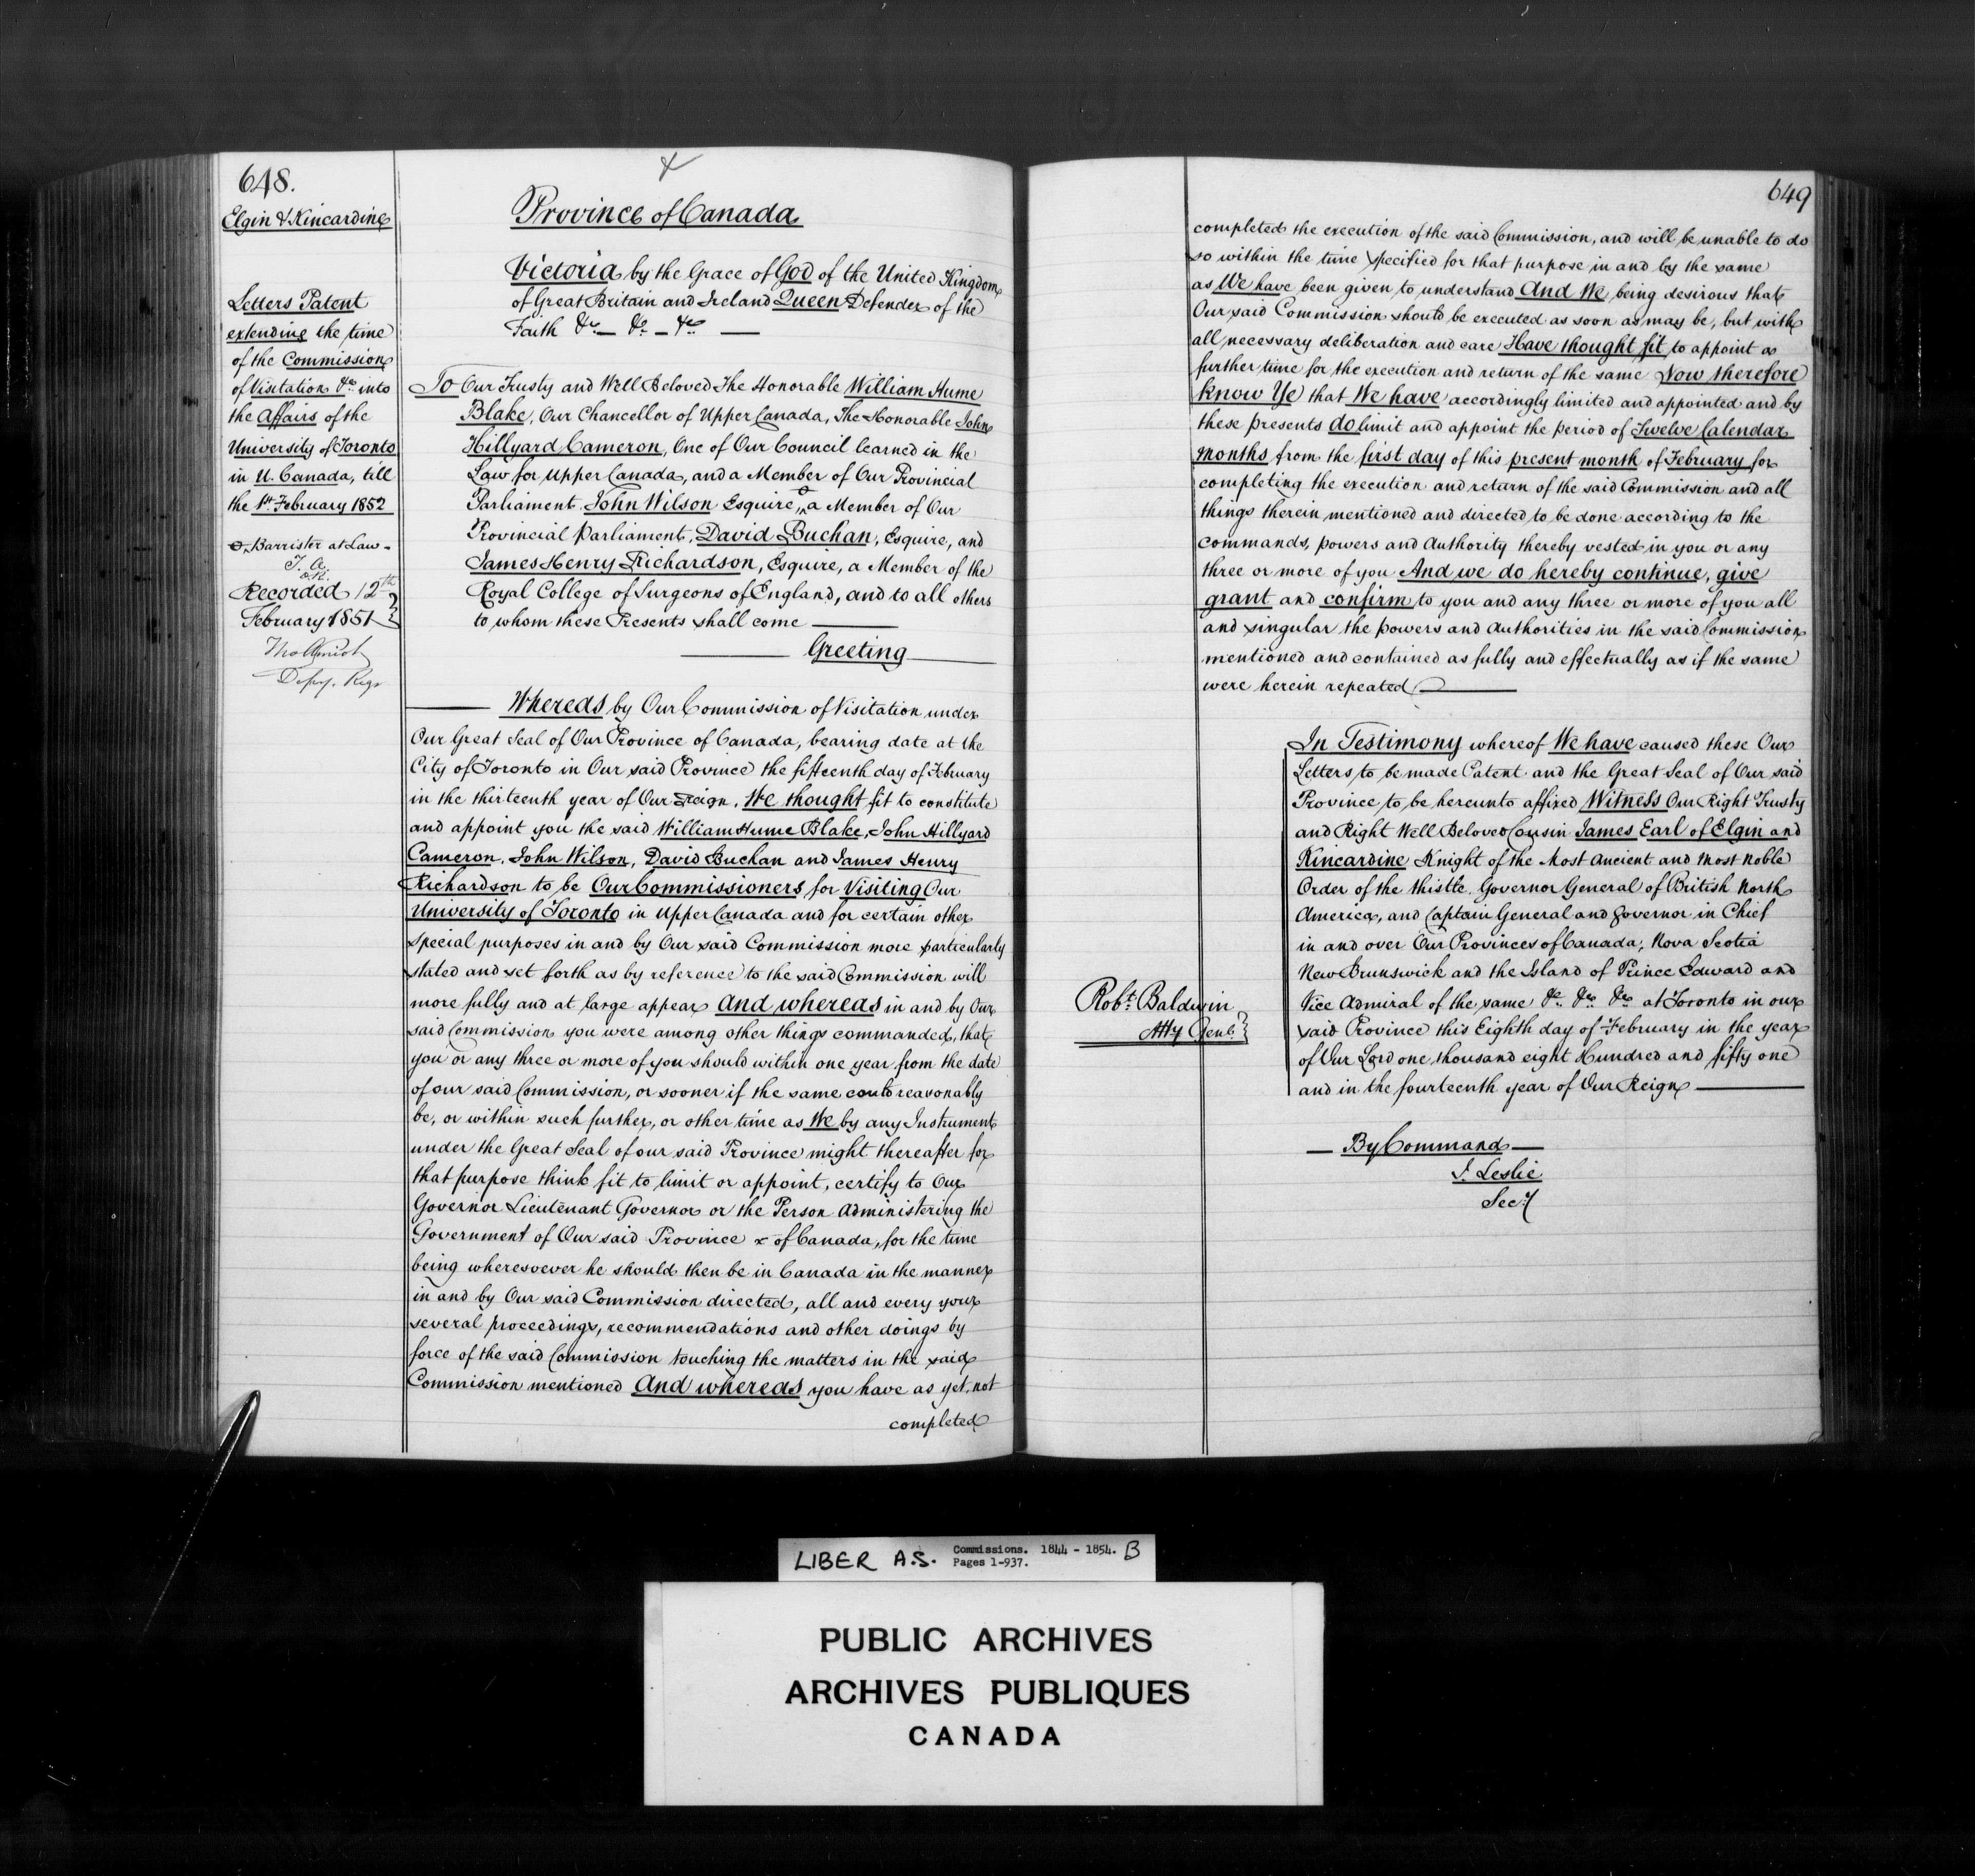 648.
Elgin & Kincardine
Letters Patent
extending the time
of the Commission
of Visitation &c into
the Affairs of the
University of Toronto
in U. Canada, till
the 1st February 1852
Barrister at Law.
Recorded 12th
February 1851
Depy. Regr
Province of Canada
Victoria by the Grace of God of the United Kingdom
of Great Britain and Ireland Queen Defender of the
Faith &c — &c — &c —
To Our Trusty and Well Beloved The Honorable William Hume
Blake, Our Chancellor of Upper Canada, The Honorable John
Hillyard Cameron, One of Our Council learned in the
Law for Upper Canada, and a Member of Our Provincial
Parliament. John Wilson Esquire, a Member of Our
Provincial Parliament, David Buchan, Esquire, and
James Henry Richardson, Esquire, a Member of the
Royal College of Surgeons of England, and to all others
to whom these Presents shall come —
— Greeting —
— Whereas by Our Commission of Visitation under
Our Great Seal of Our Province of Canada, bearing date at the
City of Toronto in Our said Province the fifteenth day of February
in the thirteenth year of Our Reign. We thought fit to constitute
and appoint you the said William Hume Blake, John Hillyard
Cameron, John Wilson, David Buchan and James Henry
Richardson to be Our Commissioners for Visiting Our
University of Toronto in Upper Canada and for certain other
special purposes in and by Our said Commission more particularly
stated and set forth as by reference to the said Commission will
more fully and at large appear And whereas in and by Our
said Commission you were among other things commanded, that
you or any three or more of you should within one year from the date
of our said Commission, or sooner if the same could reasonably
be, or within such further, or other time as We by any Instrument
under the Great Seal of our said Province might thereafter for
that purpose think fit to limit or appoint, certify to Our
Governor Lieutenant Governor or the Person Administering the
Government of Our said Province x of Canada, for the time
being wheresoever he should then be in Canada in the manner
in and by Our said Commission directed, all and every your
several proceedings, recommendations and other doings by
force of the said Commission touching the matters in the said
Commission mentioned And whereas you have as yet, not
completed
649
completed the execution of the said Commission, and will be unable to do
so within the time specified for that purpose in and by the same
as We have been given to understand And We being desirous that
Our said Commission should be executed as soon as may be, but with
all necessary deliberation and care Have thought fit to appoint a
further time for the execution and return of the same Now therefore
know Ye that We have accordingly limited and appointed and by
these presents do limit and appoint the period of Twelve Calendar
months from the first day of this present month of February for
completing the execution and return of the said Commission and all
things therein mentioned and directed to be done according to the
commands, powers and Authority thereby vested in you or any
three or more of you And we do hereby continue, give
grant and confirm to you and any three or more of you all
and singular the powers and Authorities in the said Commission
mentioned and contained as fully and effectually as if the same
were herein repeated —
In Testimony whereof We have caused these Our
Letters to be made Patent and the Great Seal of Our said
Province to be hereunto affixed Witness Our Right Trusty
and Right Well Beloved Cousin James Earl of Elgin and
Kincardine Knight of the Most Ancient and Most Noble
Order of the Thistle. Governor General of British North
America, and Captain General and Governor in Chief
in and over Our Provinces of Canada, Nova Scotia
New Brunswick and the Island of Prince Edward and
Vice Admiral of the same &c. &c. &c. at Toronto in our
said Province this Eighth day of February in the year
of Our Lord one thousand eight Hundred and fifty one
and in the fourteenth year of Our Reign —
Robt. Baldwin
Atty Genl.
— By Command —
J. Leslie
Secy
LIBER A.S. Commissions. 1844 - 1854. B
Pages 1-937.
PUBLIC ARCHIVES
ARCHIVES PUBLIQUES
CANADA